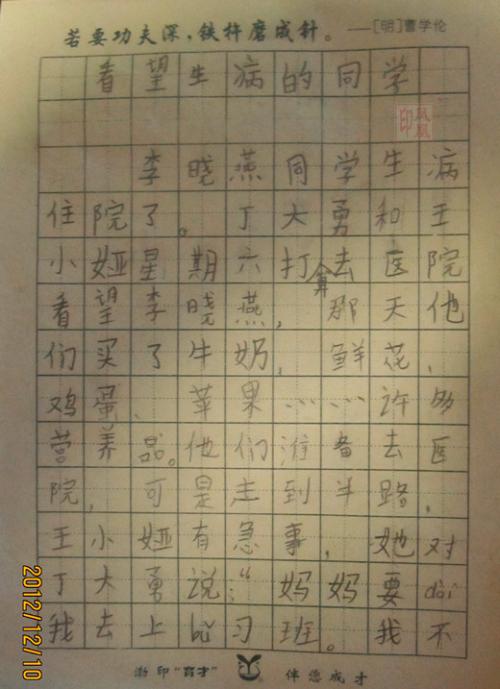 若要功夫深，铁杵磨成针。——[明]曹学伦
看望生病的同学
李晓燕同学生病
住院了。丁大勇和王
小娅星期六打算去医院
看望李晓燕，那天他
们买了牛奶，鲜花，
鸡蛋、苹果……许多
营养品。他们准备去医
院，可是走到半路，
王小娅有急事，她对
丁大勇说：“妈妈要dài
我去上补习班。我不
渤印“育才”
伴您成才
2012/12/10